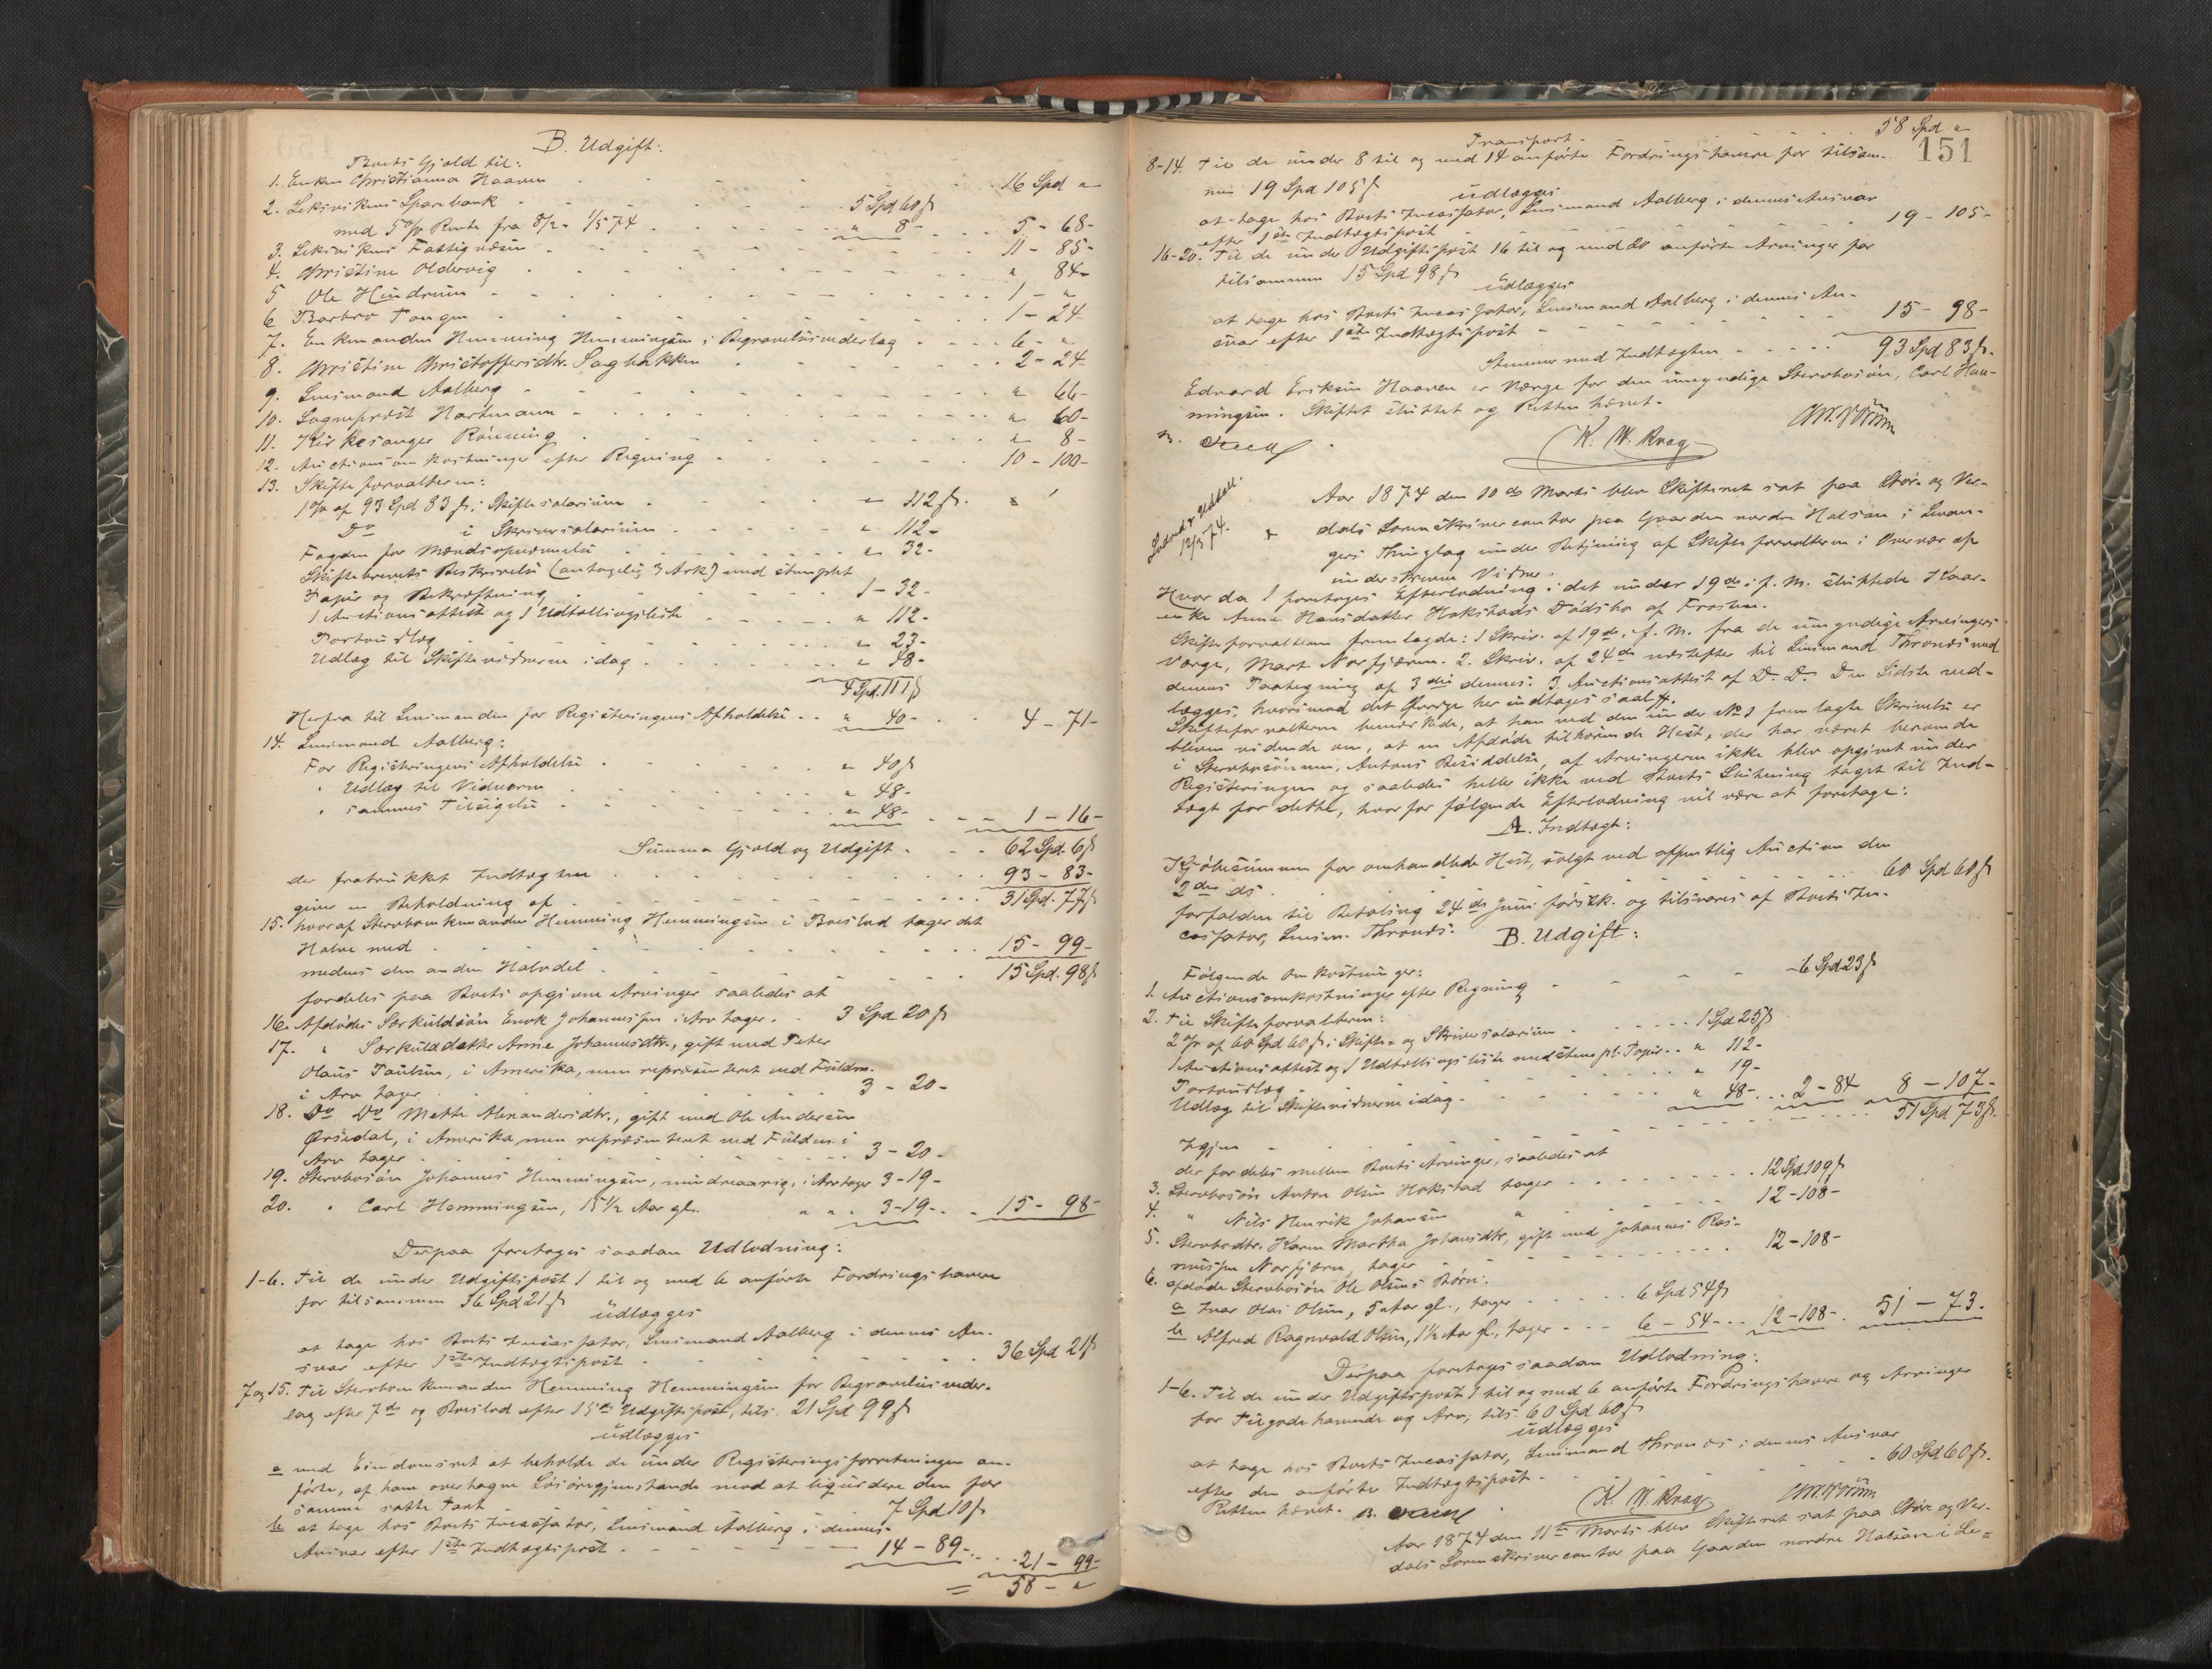 B. Udgift:
Boets Gjæld til:
1. Enken Christianna Haaven 16 Spd "
2. Leksvikens Sparebank 5 Spd 60 ß
med 5 % Rente fra 8/2 - 1/5 74 " 8 - 5 - 68 -
3. Leksvikens Fattigvæsen 11 - 85 -
4. Christine Oldervig " 84 -
5 Ole Hindrum 1 - "
6 Barbro Tangen 1 - 24
7. Enkemanden Henning Henningsen, Begravelsesvederlag 6 - "
8. Christine Christoffersdtr. Sagbakken 2 - 24
9. Lensmand Aalberg " 66 -
10. Sogneprest Hartmann " 60 -
11. Kirkesanger Rönning " 8 -
12. Auctionsomkostninger efter Regning 10 - 100 -
13. Skifteforvalteren:
1 % af 93 Spd 83 ß i Skiftesalarium " 112 ß
Do i Skriversalarium " 112 -
Fogden for Mændsopnævnelse " 32 -
Skiftebrevets Beskrivelse (antagelig 3 Ark) med stemplet
Papir og Bekræftning 1 - 32 -
1 Auctionsattest og 1 Udtællingsliste " 112 -
Portoudlæg " 23 -
Udlæg til Skiftevidnerne idag " 48 -
4 Spd. 111 ß
Herfra til Lensmanden for Registreringens Afholdelse " 40 - 4 - 71 -
14. Lensmand Aalberg:
For Registreringens Afholdelse " 40 ß
" Udlæg til Vidnerne " 48 -
" sammes Tilsigelse " 48 - 1 - 16 -
Summa Gjæld og Udgift 62 Spd. 6 ß
der fratrukket Indtægten 93 - 83 -
giver en Beholdning af 31 Spd. 77 ß
15. hvoraf Stervboenkemanden Henning Henningsen i Boeslod tager det
Halve med 15 - 99 -
medens den anden Halvdel 15 Spd. 98 ß
fordeles paa Boets opgivne Arvinger saaledes at
16. Afdødes Særkuldsön Enok Johannessen i Arv tager 3 Spd 20 ß
17. " Særkulddatter Anne Johannesdtr., gift med Peter
Olaus Paulsen, i Amerika, men repræsenteret ved Fuldm.
i Arv tager 3 - 20 -
18. Do Do Mette Alexandersdtr., gift med Ole Andersen
Örsiedal, i Amerika, men repræsenteret ved Fuldm. i
Arv tager 3 - 20 -
19. Stervbosön Johannes Henningsen, mindreaarig, i Arv tager 3 - 19 -
20. " Carl Henningsen, 15 1/2 Aar gl. " " " 3 - 19 - 15 - 98 -
Derpaa foretoges saadan Udlodning:
1-6. Til de under Udgiftspost 1 til og med 6 anførte Fordringshavere
for tilsammen 36 Spd 21 ß
üdlægges
at tage hos Boets Incassator, Lensmand Aalberg i dennes An-
svar efter 1ste Indtægtspost 36 Spd 21 ß
7 og 15. Til Stervboenkemanden Henning Henningsen for Begravelsesveder-
lag efter 7de og Boeslod efter 15de Udgiftspost, tils. 21 Spd 99 ß
üdlægges
a med Eiendomsret at beholde de under Registreringsforretningen an-
førte, af ham overtagne Løsöregjenstande mod at liqvidere den for
samme satte Taxt 7 Spd 10 ß
b at tage hos Boets Incassator, Lensmand Aalberg i dennes
Ansvar efter 1ste Indtægtspost 14 - 89 - 21 - 99 -
= 58 - "
151
Transport 58 Spd "
8-14. Til de under 8 til og med 14 anførte Fordringshavere for tilsam-
men 19 Spd 105 ß
üdlægges
at tage hos Boets Incassator, Lensmand Aalberg i dennes Ansvar
efter 1ste Indtægtspost 19 - 105 -
16-20. Til de under Udgiftspost 16 til og med 20 anførte Arvinger for
tilsammen 15 Spd 98 ß
üdlægges
at tage hos Boets Incassator, Lensmand Aalberg i dennes An-
svar efter 1ste Indtægtspost 15 - 98 -
Stemmer med Indtægten 93 Spd 83 ß.
Edvard Eriksen Haaven er Værge for den umyndige Stervbosön, Carl Hen-
ningsen. Skiftet sluttet og Retten hævet.
K. W. Krag
Aar 1874 den 10de Marts blev Skifteret sat paa Stör- og Ver-
dals Sorenskrivercontor paa Gaarden nordre Halsan i Levan-
gers Thinglag under Betjening af Skifteforvalteren i Overvær af
underskrevne Vidner.
Hvor da / foretoges Efterlodning i det under 19de i f. M. sluttede Kaar-
enke Anne Hansdatter Hokstads Dødsbo af Frosten.
Skifteforvalteren fremlagde: 1 Skriv. af 19de f. M. fra de umyndige Arvingers
Værge, Mart. Norfjærn. 2. Skriv. af 24de næstefter til Lensmand Thronæs med
dennes Paategning af 3die dennes. 3. Auctionsattest af D. D. Den Sidste ved-
lægges, hvorimod det Øvrige her indtages saal.
Skifteforvalteren bemærkede, at han ved den under No 1 fremlagte Skrivelse er
bleven vidende om, at en Afdøde tilhørende Hest, der har været beroende
i Stervbosönnen, Antons Besiddelse, af Arvingerne ikke blev opgivet under
Registreringen og saaledes heller ikke ved Boets Slutning taget til Ind-
tægt for dette, hvorfor følgende Efterlodning vil være at foretage:
A. Indtægt:
Kjöbesummen for omhandlede Hest, solgt ved offentlig Auction den
2den ds. 60 Spd 60 ß
forfalden til Betaling 24de Juni førstk. og tilsvares af Boets In-
cassator, Lensm. Thronæs.
B. Udgift:
Følgende Omkostninger:
1. Auctionsomkostninger efter Regning 6 Spd 23 ß
2. Til Skifteforvalteren:
2 % af 60 Spd 60 ß i Skifte- og Skriversalarium 1 Spd 25 ß
1 Auctionsattest og 1 Udtællingsliste med stempl. Papir " 112 -
Portoudlæg " 19 -
Udlæg til Skiftevidnerne idag " 48 - 2 - 84 8 - 107 -
Igjen 51 Spd 73 ß.
der fordeles mellem Boets Arvinger, saaledes at
3. Stervbosön Anton Olsen Hokstad tager 12 Spd 109 ß
4. " Nils Henrik Johansen " 12 - 108 -
5. Stervbodtr. Karen Martha Johansdtr, gift med Johannes Ras-
mussen Norfjærn, tager 12 - 108 -
6. afdøde Stervbosön Ole Olsens Børn:
a Ivar Olai Olsen, 5 Aar gl., tager 6 Spd 54 ß
b Alfred Ragnvald Olsen, 1 1/2 Aar gl., tager 6 - 54 - 12 - 108 - 51 - 73.
Derpaa foretoges saadan Udlodning:
1-6. Til de under Udgiftspost 1 til og med 6 anførte Fordringshavere og Arvinger
for Tilgodehavende og Arv, tils. 60 Spd 60 ß
üdlægges
at tage hos Boets Incassator, Lensmand Thronæs i dennes Ansvar
efter den anførte Indtægtspost 60 Spd 60 ß.
Retten hævet.
K. W. Krag
Aar 1874 den 11te Marts blev Skifteret sat paa Stör- og Ver-
dals Sorenskrivercontor paa Gaarden nordre Halsan i Le=